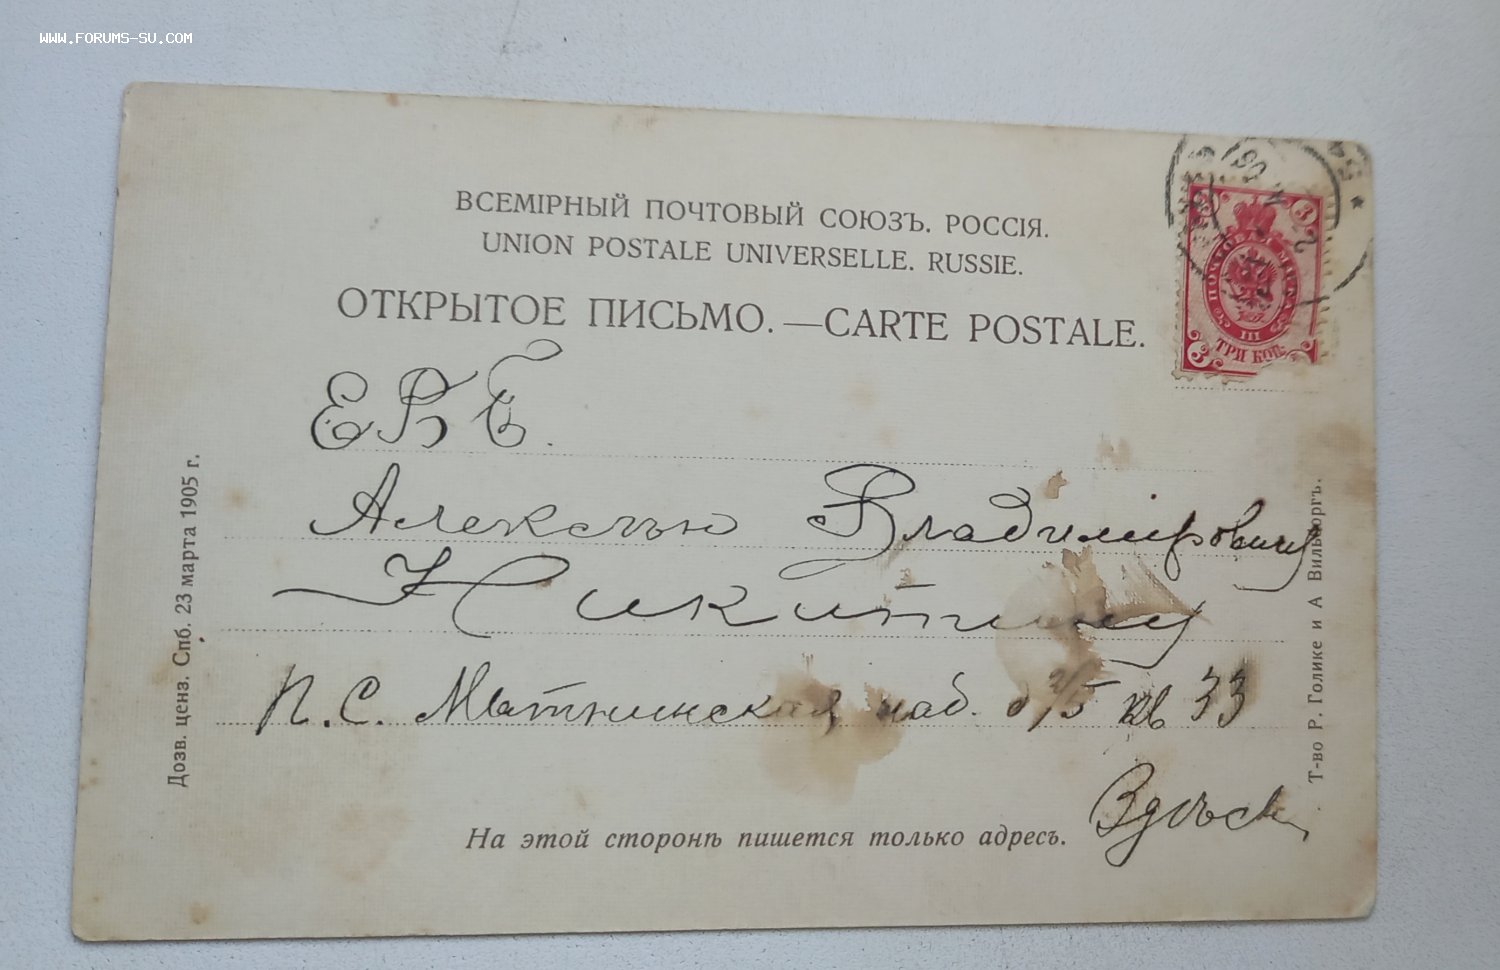 WWW.FORUMS-SU.COM
ВСЕМІРНЫЙ ПОЧТОВЫЙ СОЮЗЪ. РОССІЯ.
UNION POSTALE UNIVERSELLE. RUSSIE.
ОТКРЫТОЕ ПИСЬМО.—CARTE POSTALE.
3 3
ПОЧТОВАЯ МАРКА
III
3 ТРИ КОП.
ЕВБ.
Алексѣю Владиміровичу
Никитину
П.С. Мытнинская наб. д 5 кв 33
Здѣсь
На этой сторонѣ пишется только адресъ.
Дозв. ценз. Спб. 23 марта 1905 г.
Т-во Р. Голике и А Вильборгъ.